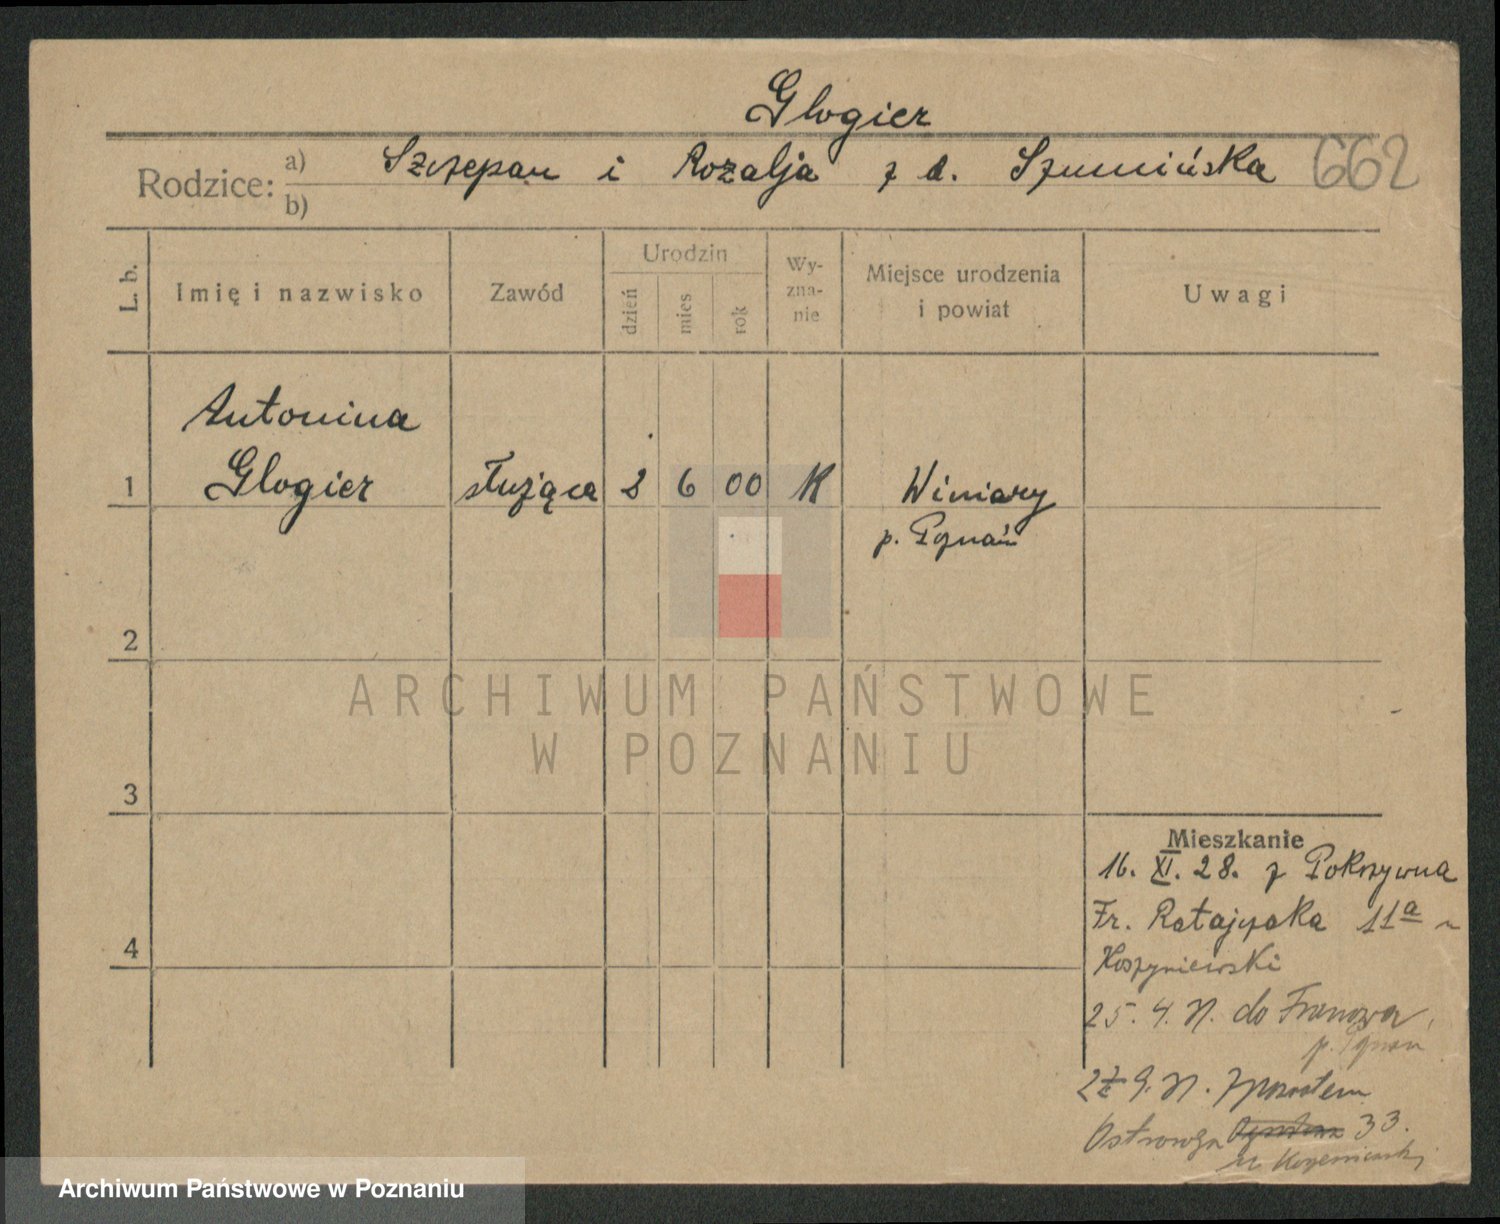 Glogier
Rodzice: a) Szczepan i Rozalja z d. Szumińska 662
b)
L. b.
Imię i nazwisko
Zawód
Urodzin
dzień
mies
rok
Wy-
zna-
nie
Miejsce urodzenia
i powiat
Uwagi
Antonina
1 Glogier służąca 2 6 00 K Winiary
p. Poznań
2
ARCHIWUM PAŃSTWOWE
W POZNANIU
3
Mieszkanie
16. XI. 28. z Pokrzywna
Fr. Ratajczaka 11a
4
25. 4. do Franowa
p. Poznań
9. z powrotem
Ostrowska 33.
Archiwum Państwowe w Poznaniu